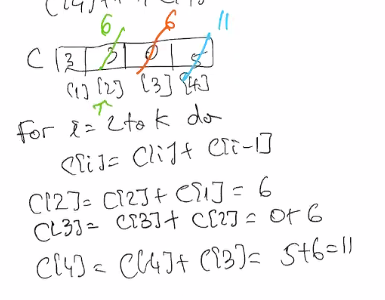 C[4]
6 6 11
C 3 3 0 5
[1] [2] [3] [4]
For i = 2 to k do
C[i] = C[i] + C[i-1]
C[2] = C[2] + C[1] = 6
C[3] = C[3] + C[2] = 0+6
C[4] = C[4] + C[3] = 5+6=11